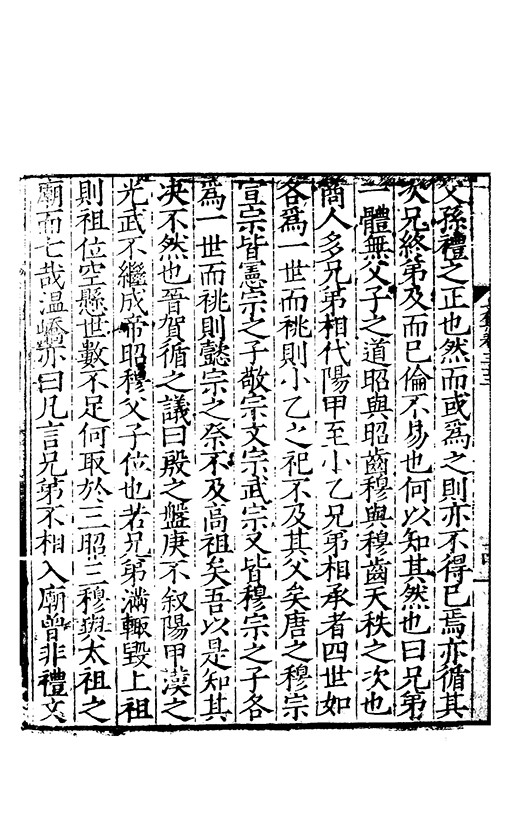 父孫禮之正也然而或爲之則亦不得已焉亦循其
次兄終弟及而已倫不易也何以知其然也曰兄弟
一體無父子之道昭與昭齒穆與穆齒天秩之次也
商人多兄弟相代陽甲至小乙兄弟相承者四世如
各爲一世而祧則小乙之祀不及其父矣唐之穆宗
宣宗皆憲宗之子敬宗文宗武宗又皆穆宗之子各
爲一世而祧則懿宗之祭不及高祖矣吾以是知其
决不然也晉賀循之議曰殷之盤庚不叙陽甲漢之
光武不繼成帝昭穆父子位也若兄弟滿輙毀上祖
則祖位空懸世數不足何取於三昭三穆與太祖之
廟而七哉温嶠亦曰凡言兄弟不相入廟曾非禮文